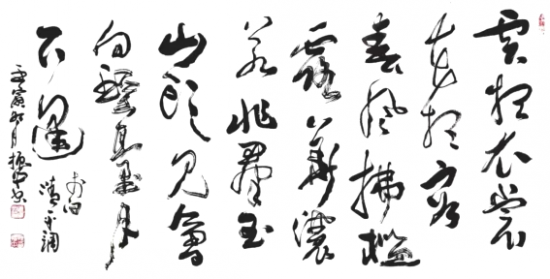 雲想衣裳
花想容
春風拂檻
露華濃
若非羣玉
山頭見會
向瑤臺月
下逢
李白
清平調